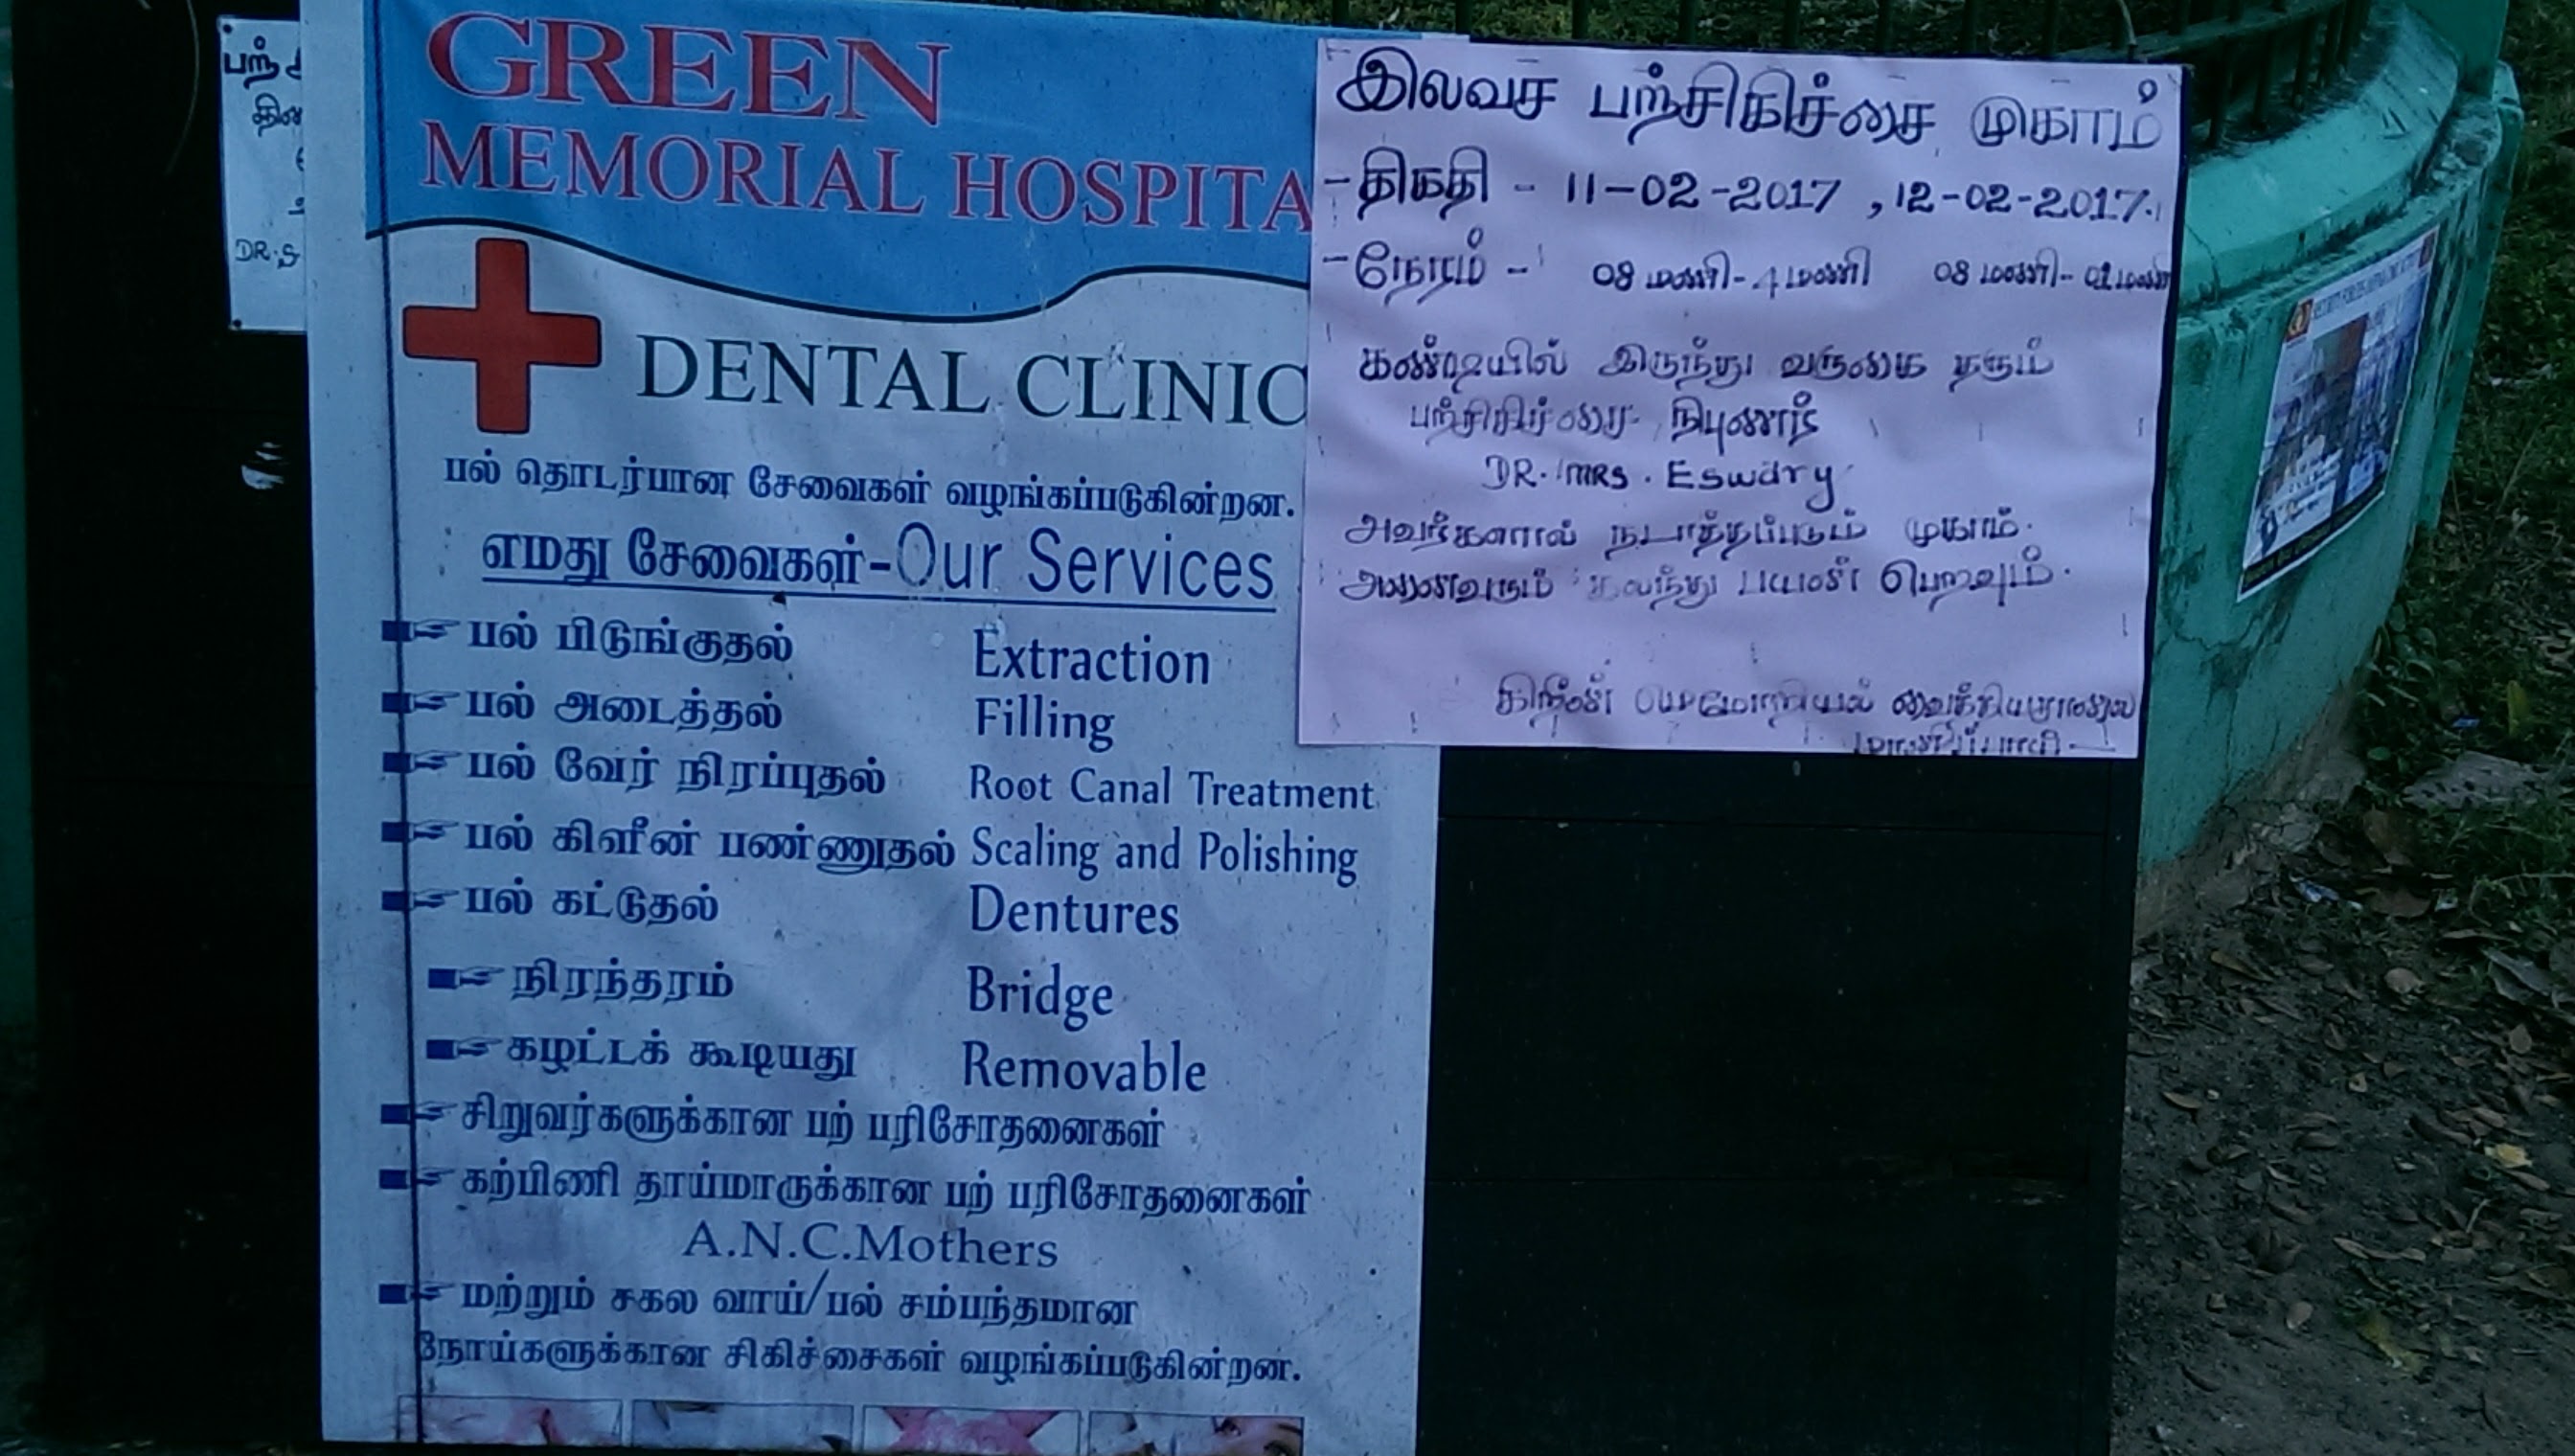 GREEN
MEMORIAL HOSPITA
DENTAL CLINIC
பல் தொடர்பான சேவைகள் வழங்கப்படுகின்றன.
எமது சேவைகள்-Our Services
பல் பிடுங்குதல் Extraction
பல் அடைத்தல் Filling
பல் வேர் நிரப்புதல் Root Canal Treatment
பல் கிளீன் பண்ணுதல் Scaling and Polishing
பல் கட்டுதல் Dentures
நிரந்தரம் Bridge
கழட்டக் கூடியது Removable
சிறுவர்களுக்கான பற் பரிசோதனைகள்
கற்பிணி தாய்மாருக்கான பற் பரிசோதனைகள்
A.N.C.Mothers
மற்றும் சகல வாய்/பல் சம்பந்தமான
நோய்களுக்கான சிகிச்சைகள் வழங்கப்படுகின்றன.
இலவச பற்சிகிச்சை முகாம்
-திகதி - 11-02-2017 , 12-02-2017.
-நேரம் - 08 மணி - 4 மணி 08 மணி -
கண்டியில் இருந்து வருகை தரும்
பற்சிகிச்சை நிபுணர்
DR. MRS. Eswary
அவர்களால் நடாத்தப்படும் முகாம்.
அனைவரும் கலந்து பயன் பெறவும்.
கிறீன் மெமோறியல் வைத்தியசாலை
மானிப்பாய்
DR. S